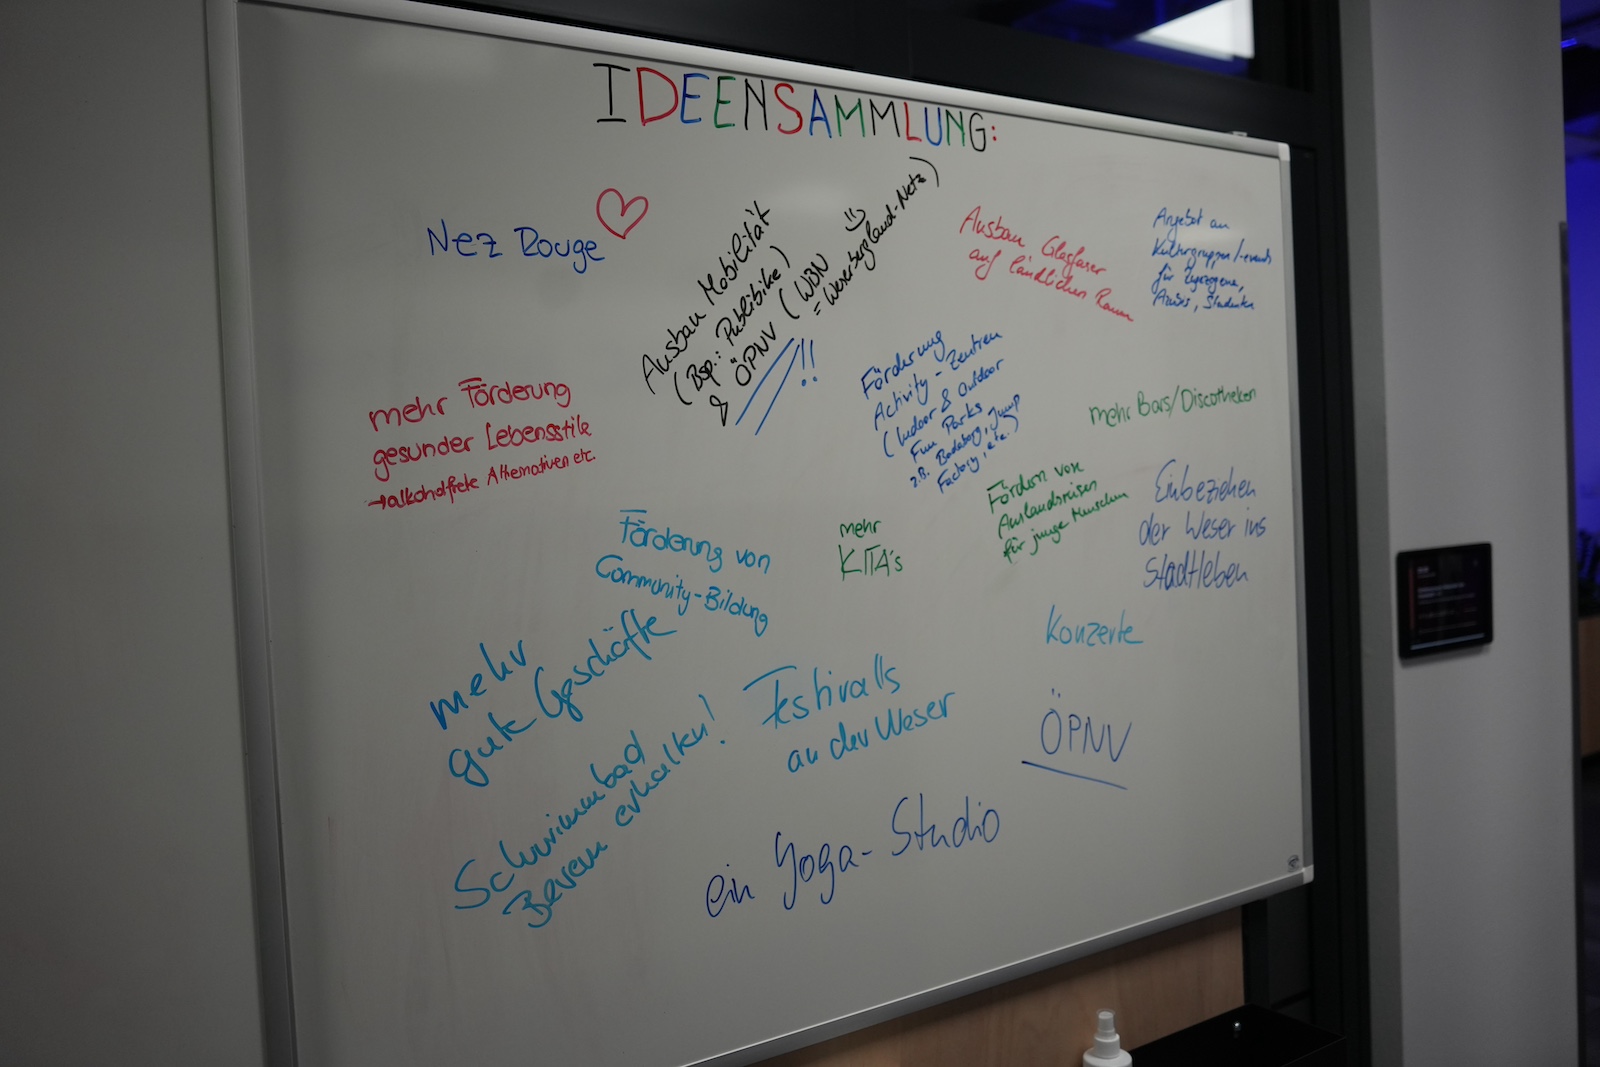 IDEENSAMMLUNG:
Nez Rouge
Ausbau Mobilität
(Bsp.: Publibike)
& ÖPNV (WBN
= Weserbergland-Netz)
!!
Ausbau Glasfaser
auf ländlichen Raum
Angebot an
Kulturgruppen/-events
für Zugezogene,
Azubis, Studenten
mehr Förderung
gesunder Lebensstile
→ alkoholfreie Alternativen etc.
Förderung
Activity-Zentren
(Indoor & Outdoor
Fun Parks
z.B. Jump
Factory, etc.)
mehr Bars/Discotheken
Fördern von
Auslandsreisen
für junge Menschen
Einbeziehen
der Weser ins
Stadtleben
Förderung von
Community-Bildung
mehr
KITA's
Konzerte
mehr
gute Geschäfte
Festivalls
an der Weser
ÖPNV
Schwimmbad
Bevern erhalten!
ein Yoga-Studio